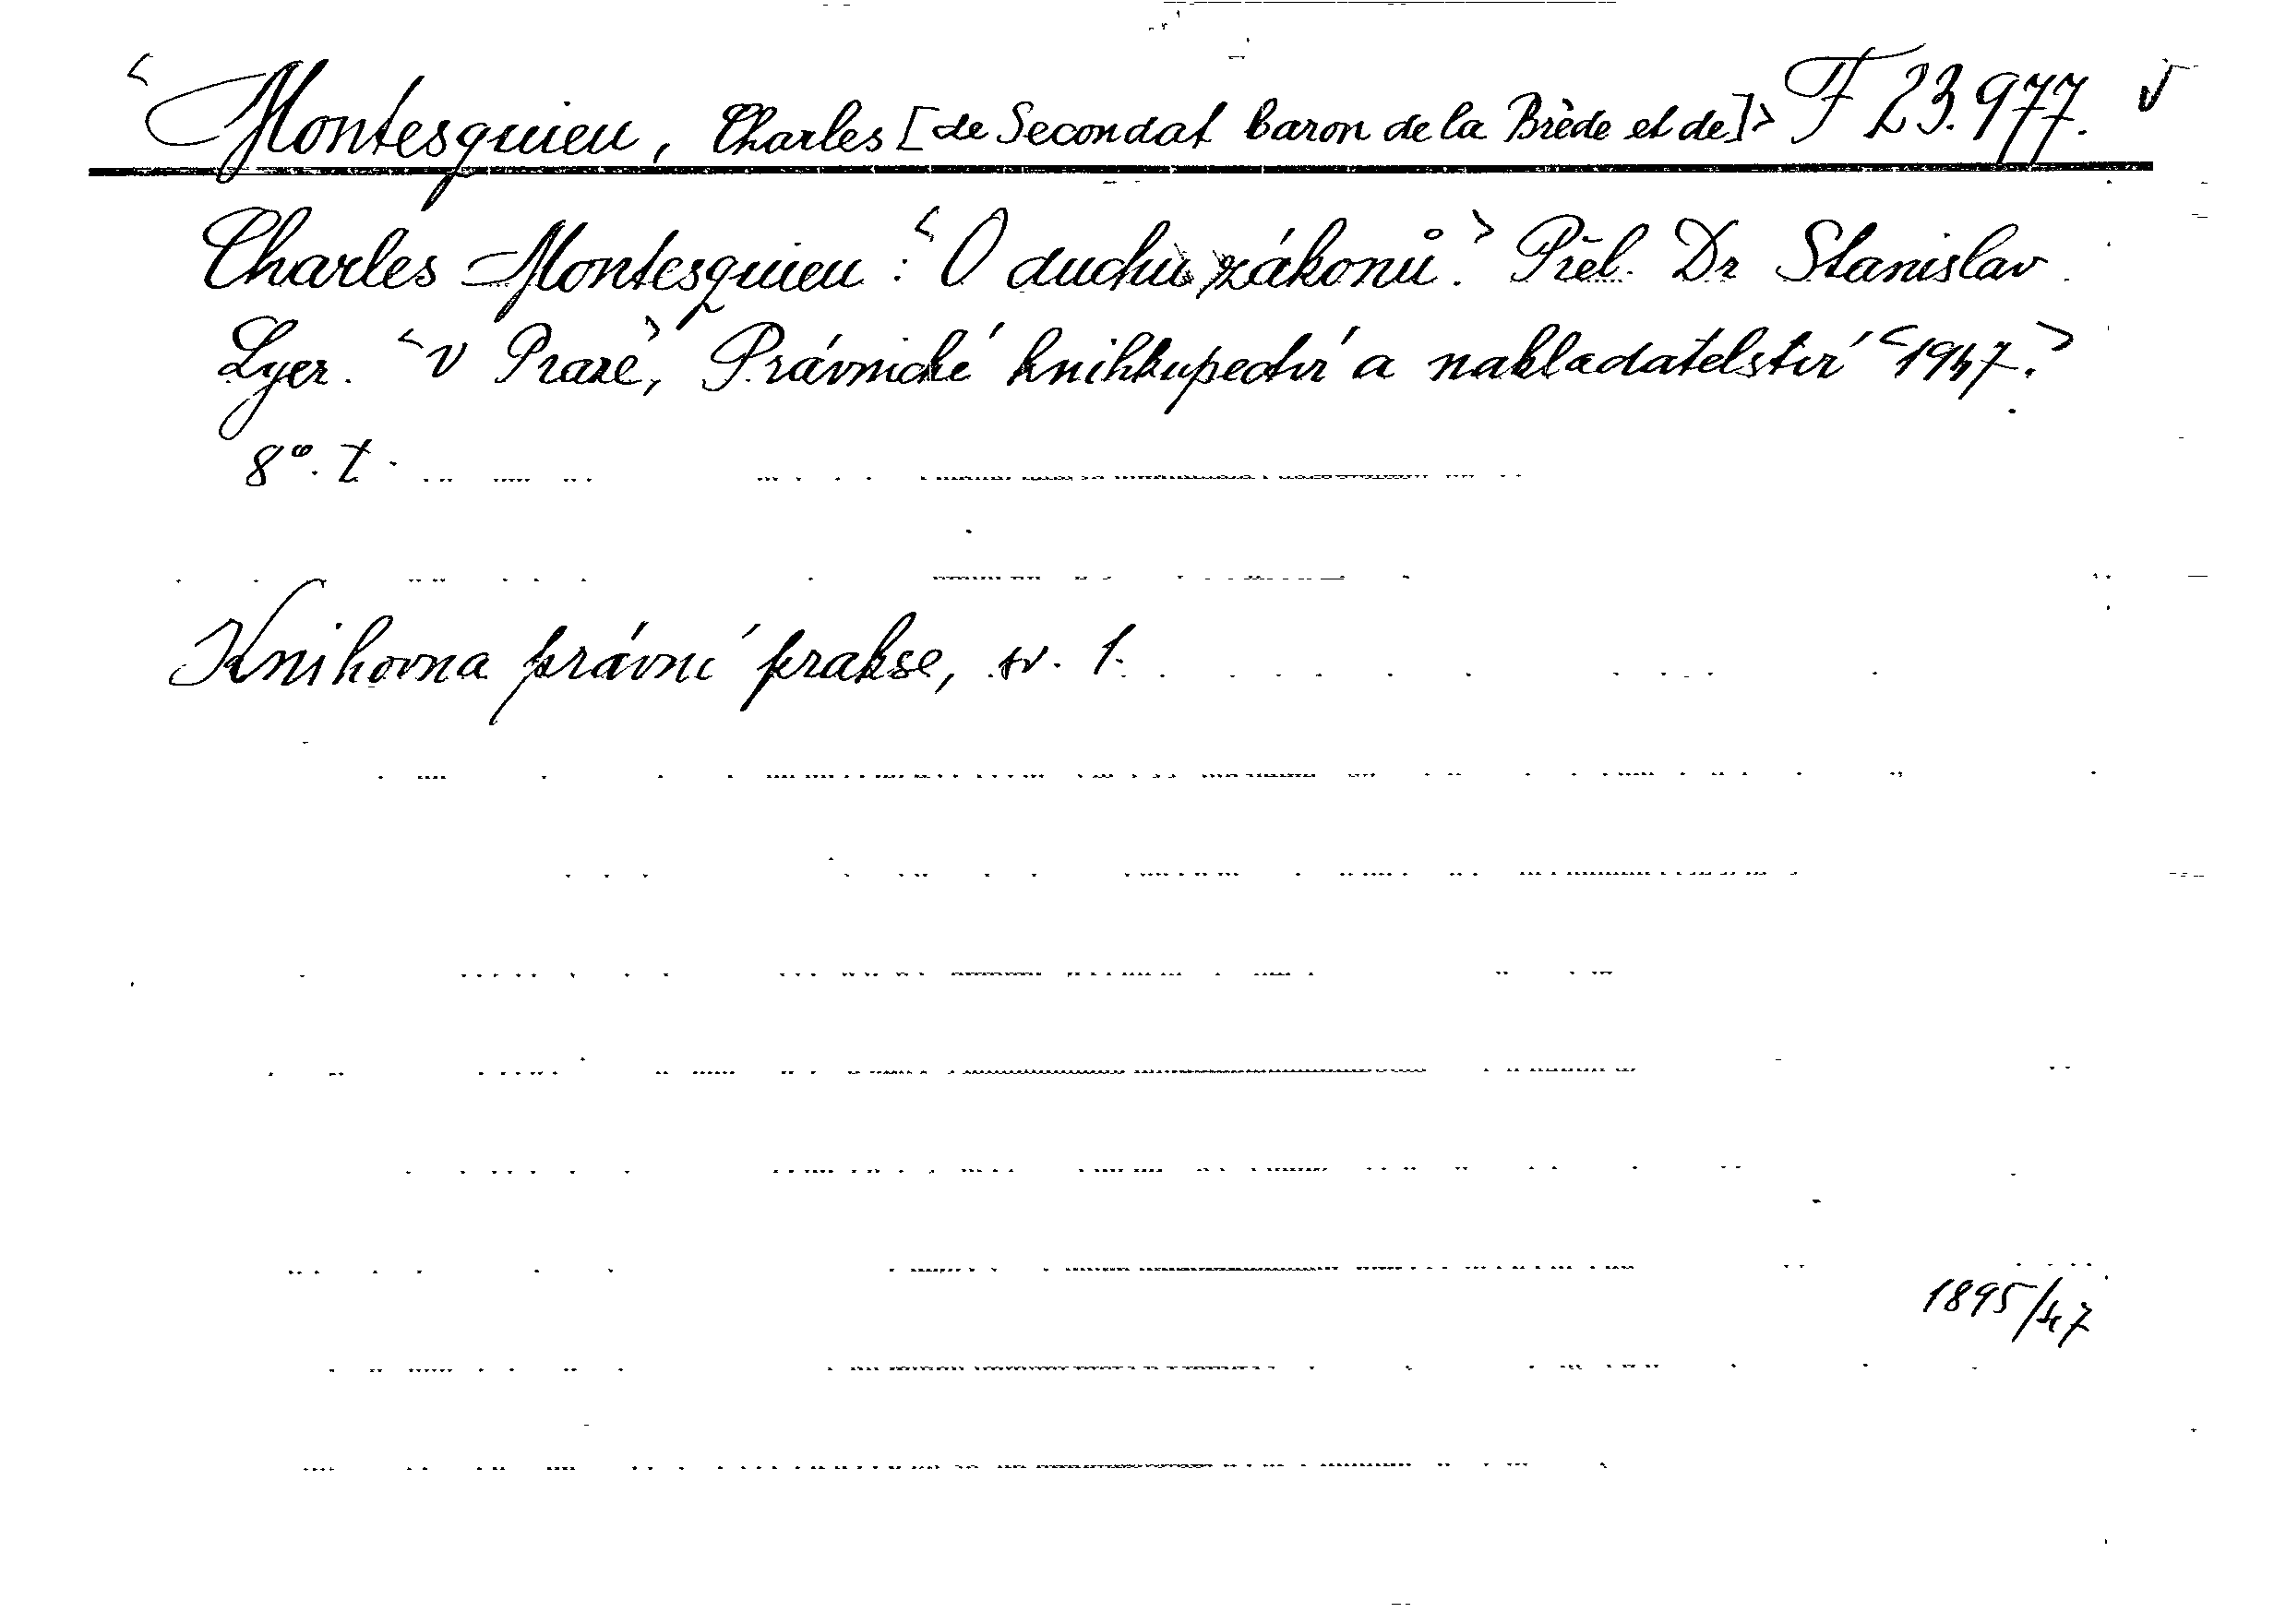 <Montesquieu, Charles [de Secondat baron de la Brède et de]> F 23.977. √
Charles Montesquieu: <O duchu zákonů.> Přel. Dr Stanislav
Lyer. <V Praze>, Právnické knihkupectví a nakladatelství <1947.>
8°. t.
Knihovna právní prakse, sv. 1.
1895/47